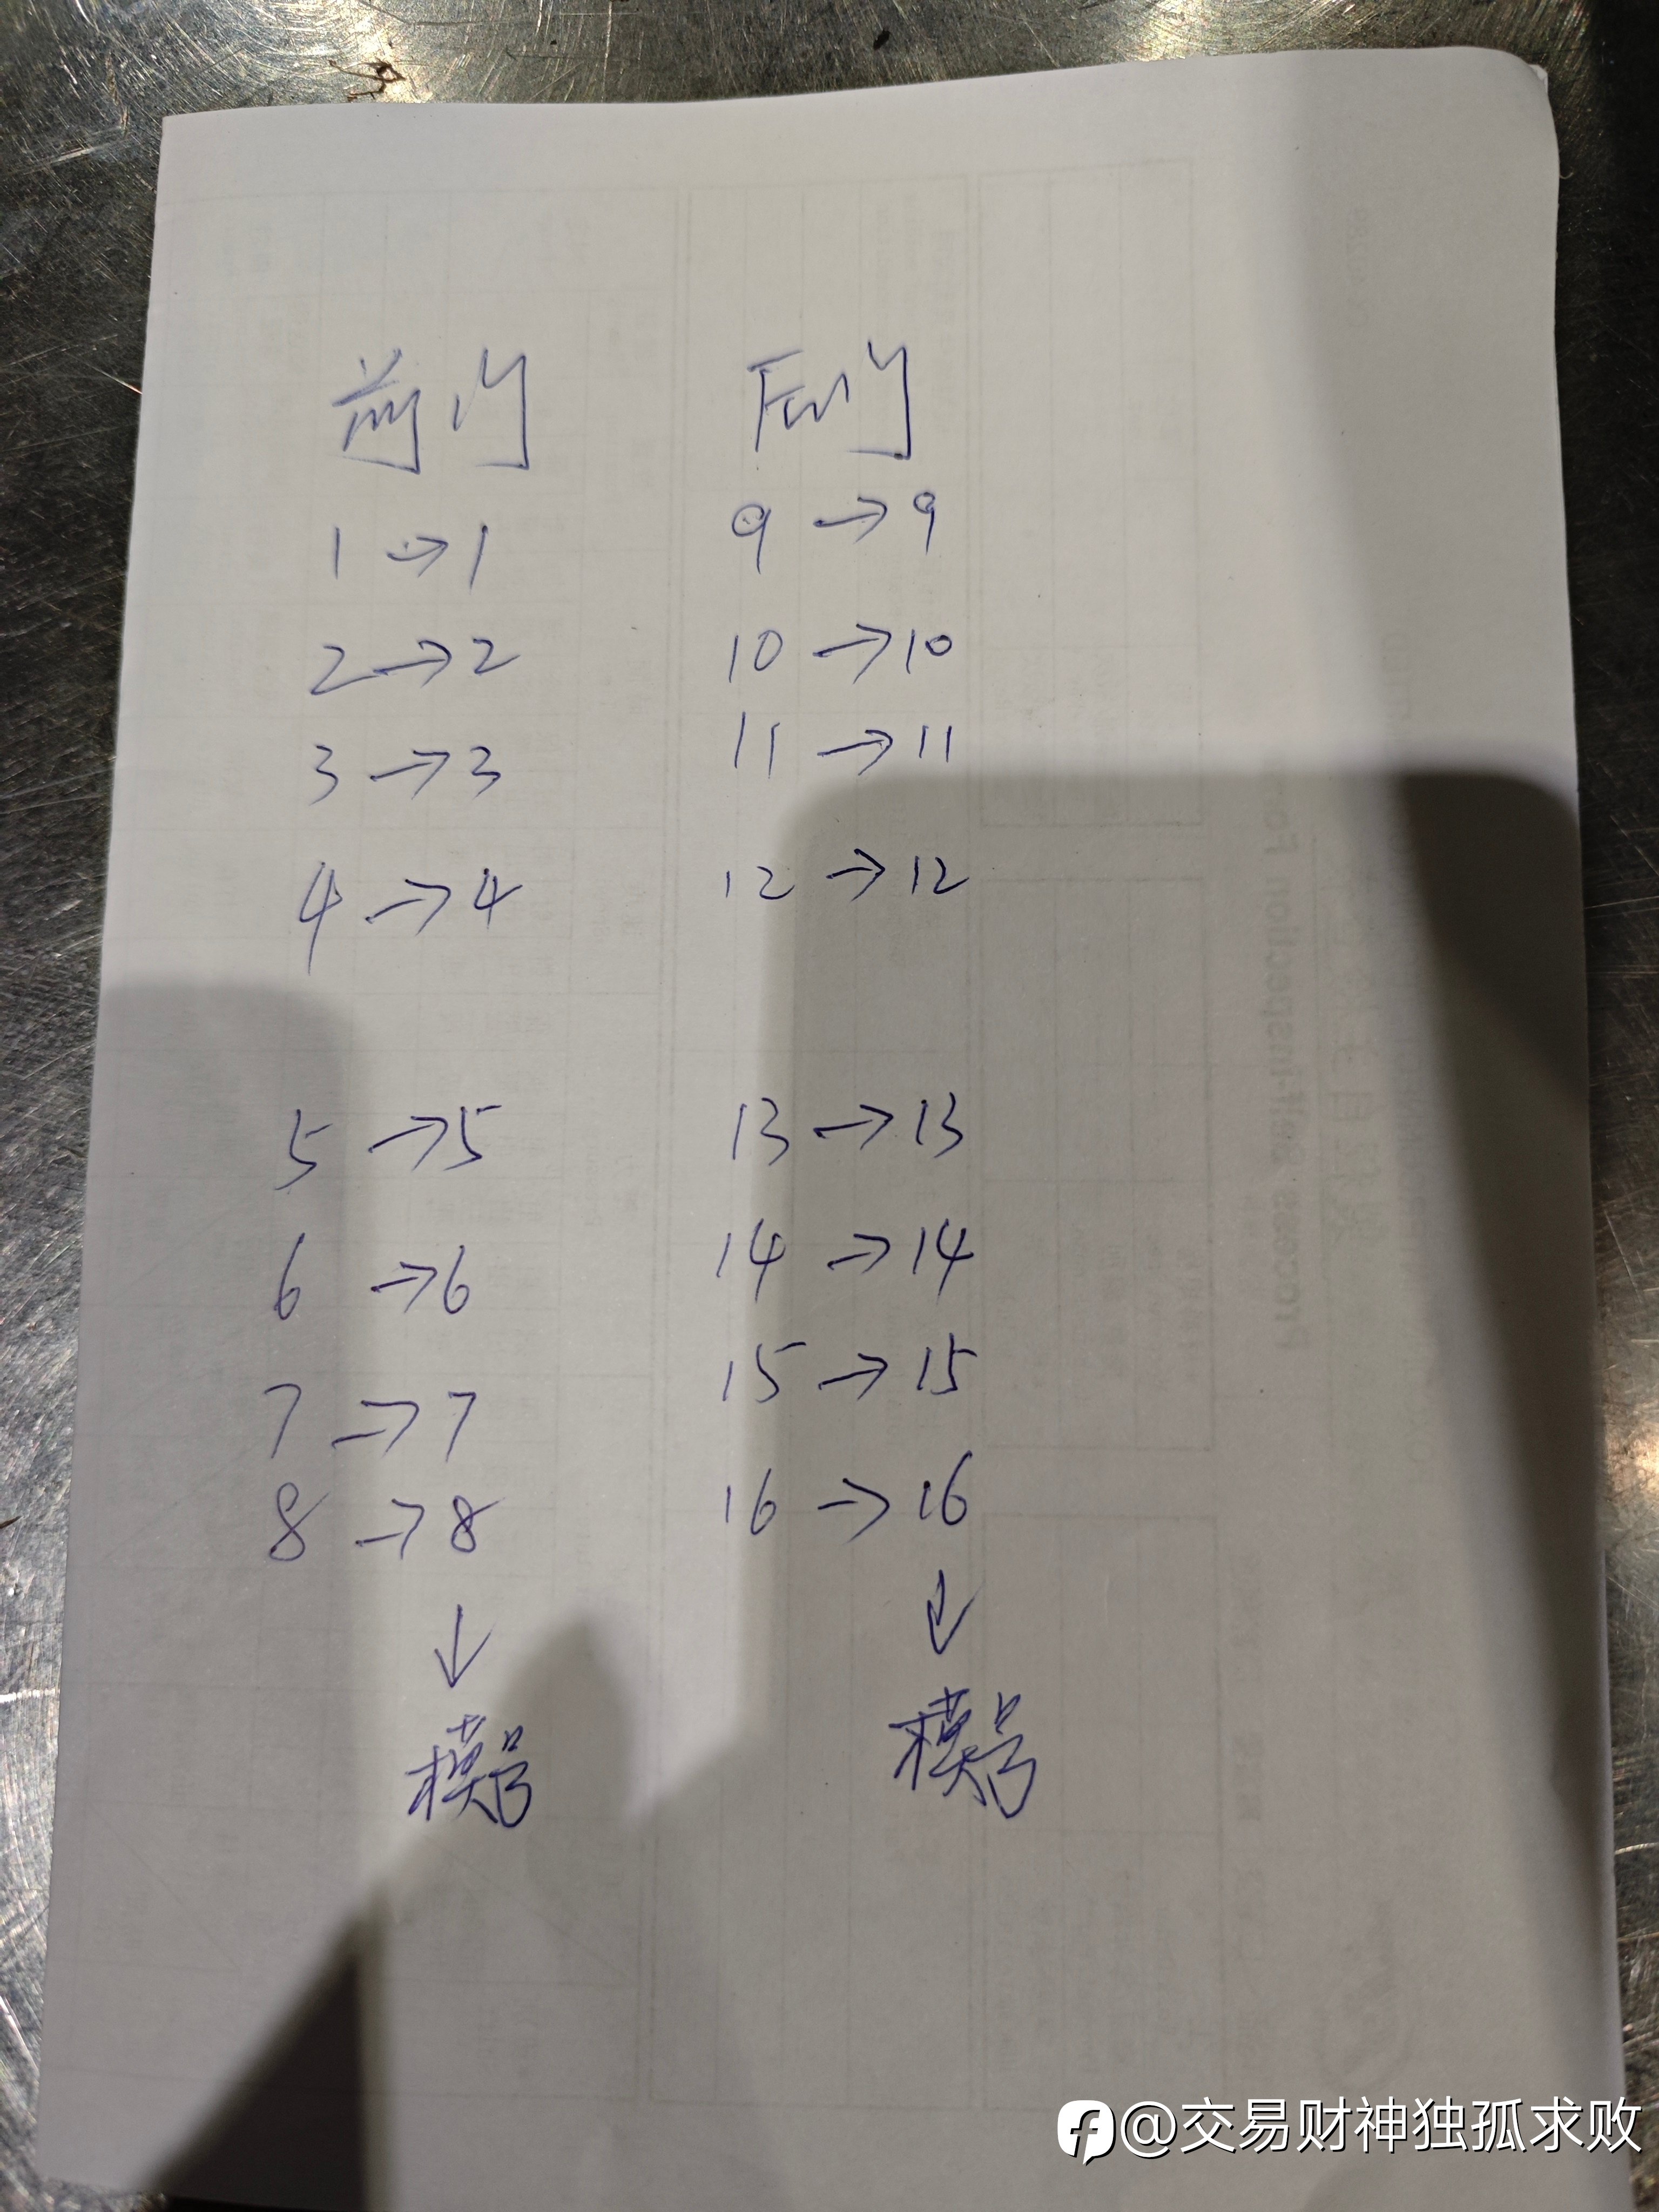 前门
1→1
2→2
3→3
4→4
5→5
6→6
7→7
8→8
↓
模号
后门
9→9
10→10
11→11
12→12
13→13
14→14
15→15
16→16
↓
模号
Process Self-Inspection
@交易财神独孤求败